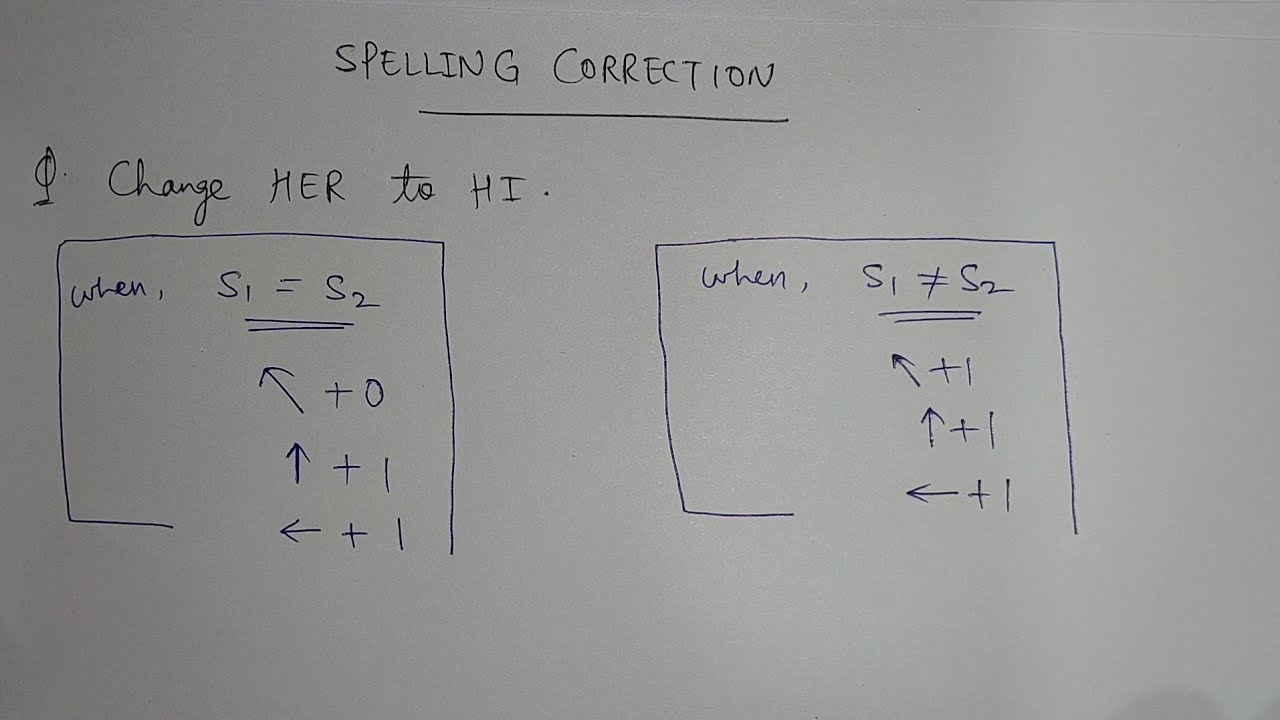 SPELLING CORRECTION
Q. Change HER to HI.
when, S1 = S2
↖ +0
↑ +1
← +1
when, S1 ≠ S2
↖ +1
↑ +1
← +1